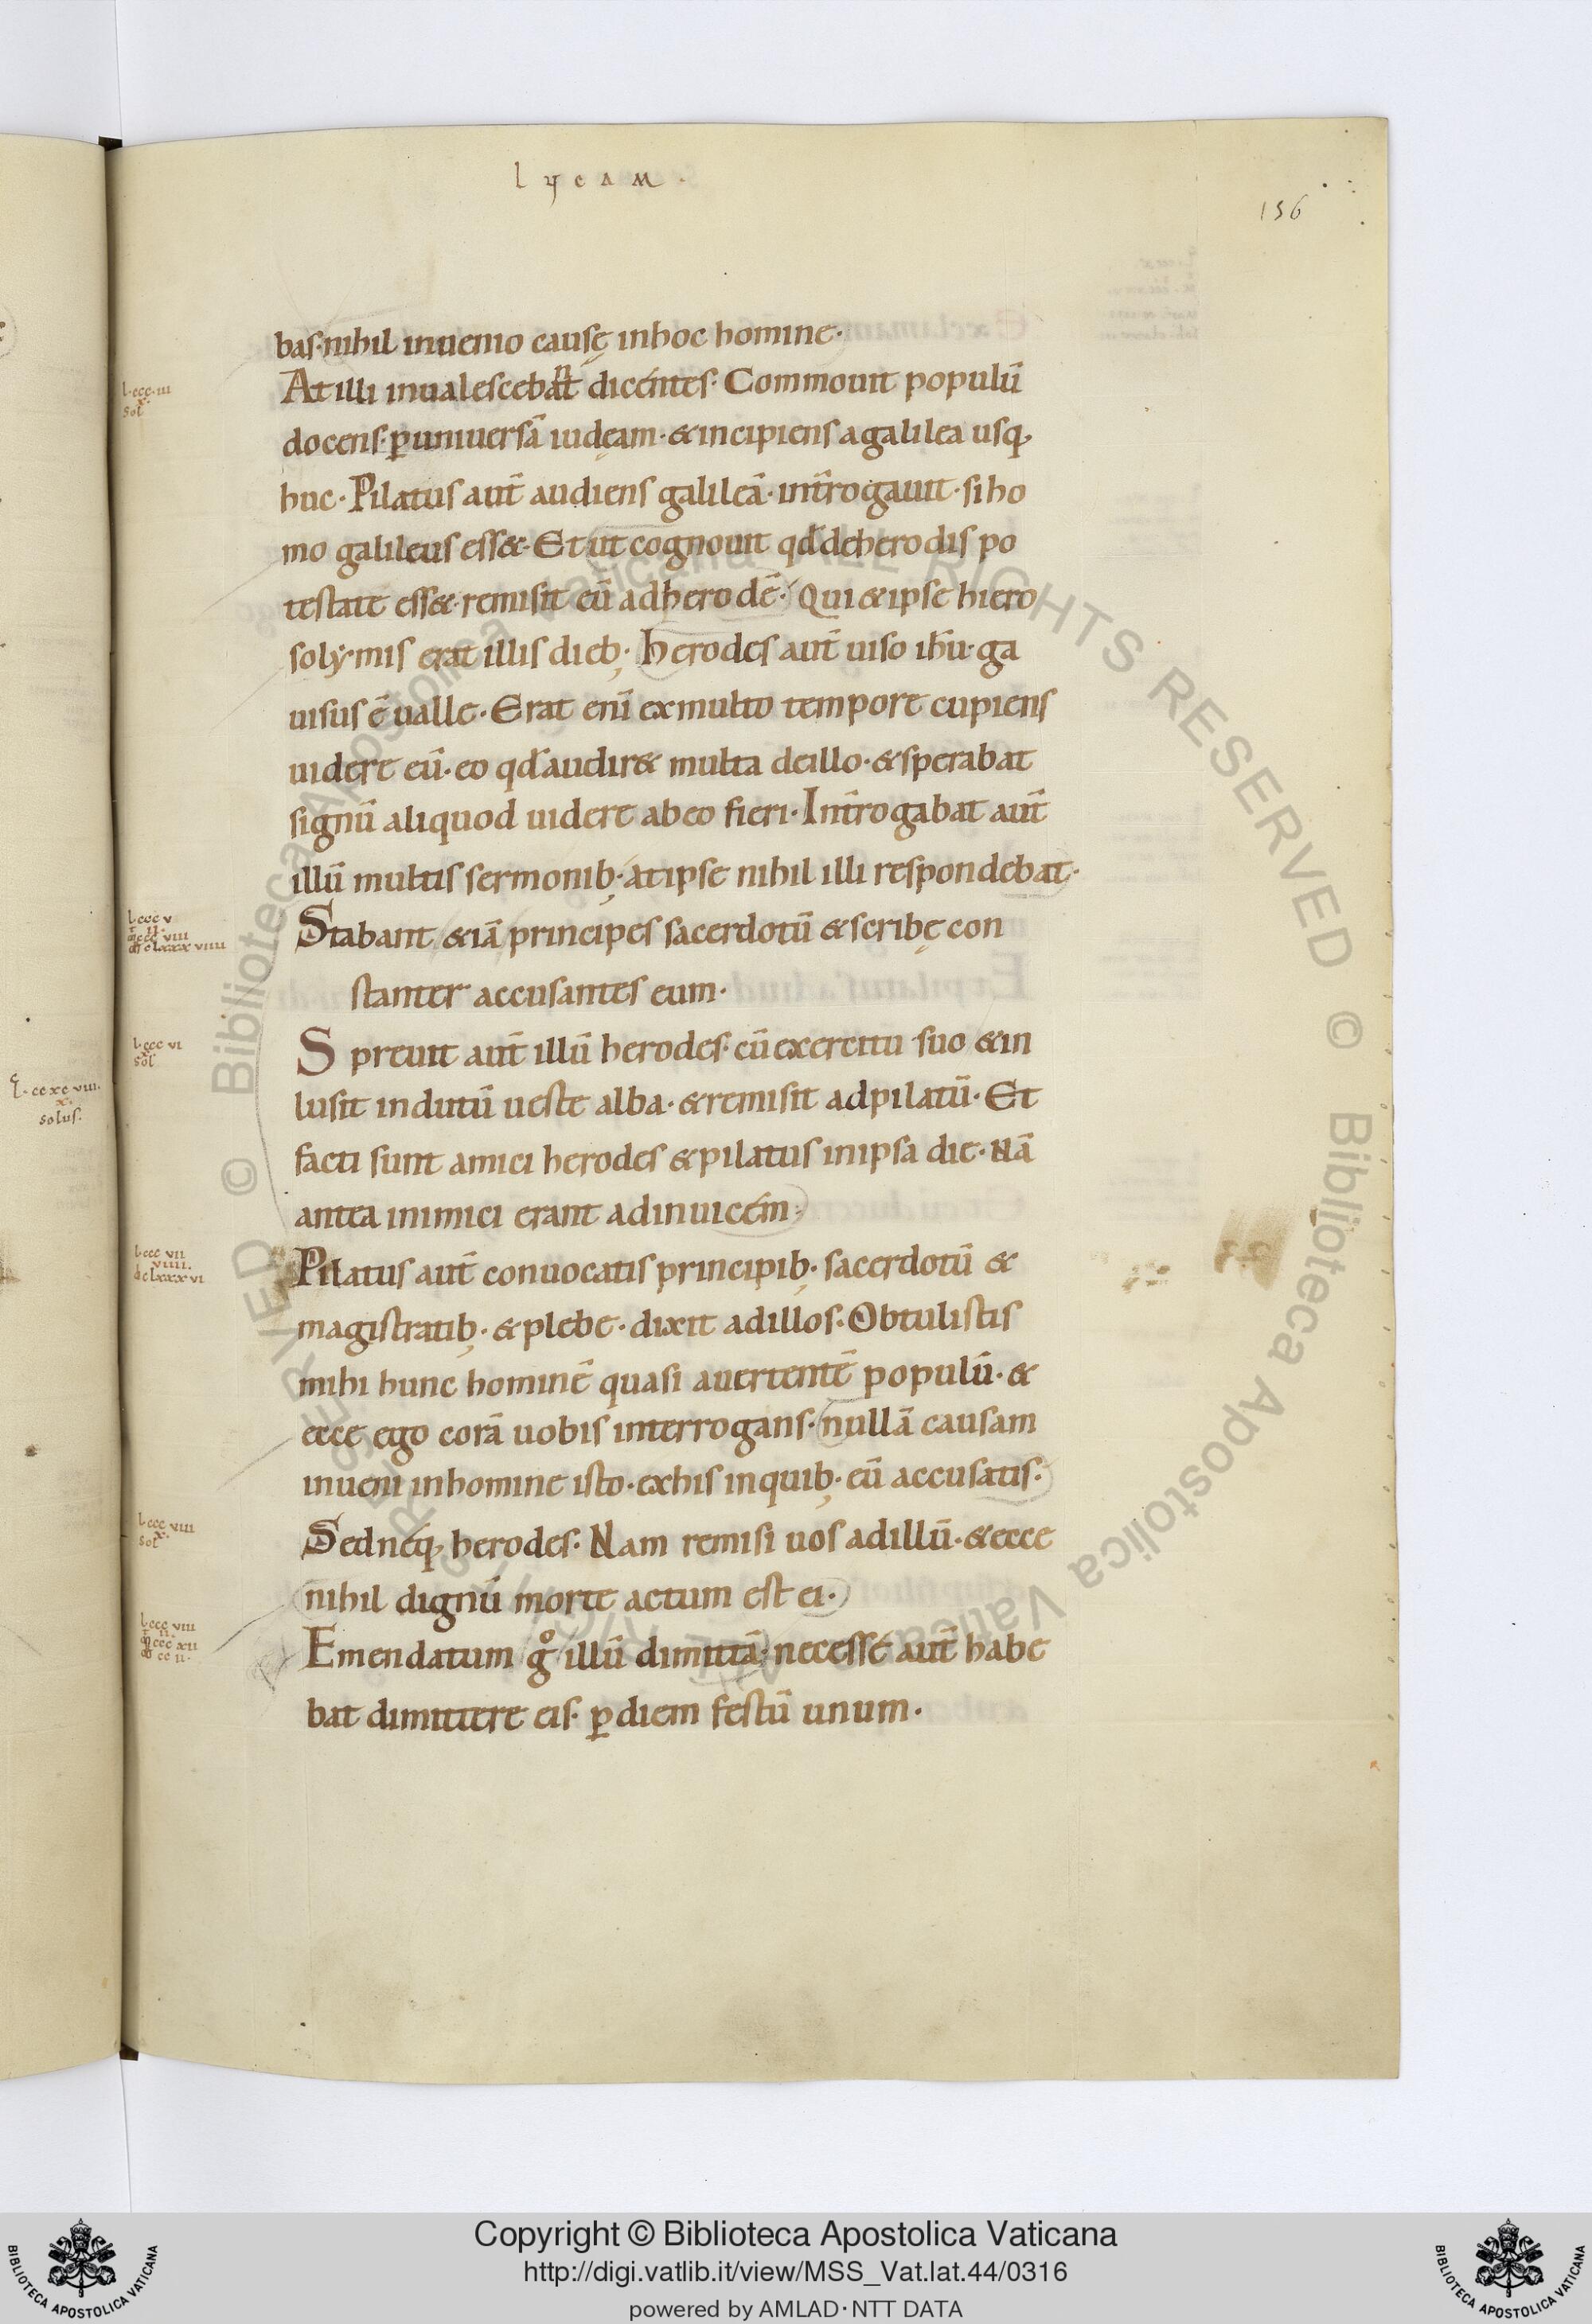 lycam.
156
bas·nihil inuenio causę inhoc homine·
Atilli inualescebant dicentes· Commouit populū
docens·ꝑuniuersā iudęam·&incipiens agalilea usq;
huc· Pilatus aut̄ audiens galileā·int̄rogauit·siho
mo galileus ess&·Et ut cognouit qd̄deherodis po
testate ess&·remisit eū adherodē· Qui&ipse hiero
soly·mis erat illis dieb;· herodes aut̄ uiso ih̄u·ga
uisus ē ualle· Erat eni̅ exmulto tempore cupiens
uidere eū·eo qd̄audir& multa deillo·&sperabat
signū aliquod uidere abeo fieri· Int̄rogabat aut̄
illū multis sermonib;·atipse nihil illi respondebat·
l·ccc·iii
x·
sol̄
l·ccc v
ccc viii
Stabant &iā principes sacerdotū &scribę con
stanter accusantes eum·
l·ccc vi
x
sol̄
Spreuit aut̄ illū herodes·cūexercitu suo &in
lusit indutū ueste alba·&remisit adpilatū· Et
facti sunt amici herodes &pilatus inipsa die·Nā
antea inimici erant adinuicem·
l·ccc vii
viiii·
Pilatus aut̄ conuocatis principib;· sacerdotū &
magistratib;·&plebe·dixit adillos·Obtulistis
mihi hunc hominē quasi auertentē populū·&
ecce ego corā uobis interrogans·nullā causam
inueni inhomine isto·exhis inquib;·eū accusatis·
l·ccc viii
x·
sol̄
Sedneq; herodes· Nam remisi uos adillū·&ecce
nihil dignū morte actum est ei·
l·ccc viiii
ccc xii
cc ii·
Emendatum gͦ illū dimittā·necesse aut̄ habe
bat dimittere eis· ꝑdiem festū unum·
l·ccxc viii·
x·
solus·
© Biblioteca Apostolica Vaticana ALL RIGHTS RESERVED © Biblioteca Apostolica Vaticana ALL RIGHTS RESERVED
Copyright © Biblioteca Apostolica Vaticana
http://digi.vatlib.it/view/MSS_Vat.lat.44/0316
powered by AMLAD·NTT DATA
BIBLIOTECA APOSTOLICA VATICANA
BIBLIOTECA APOSTOLICA VATICANA